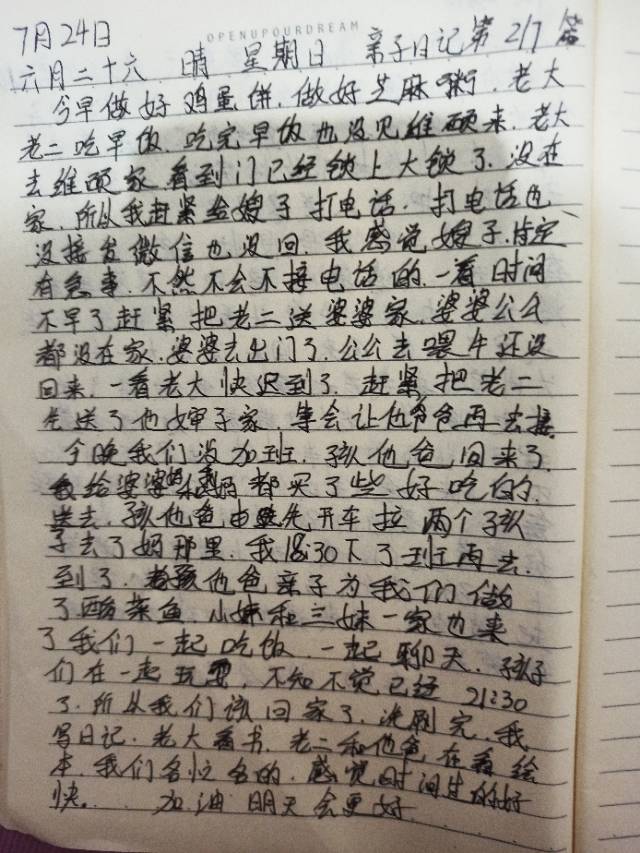 OPENUPOURDREAM
7月24日
六月二十六 晴 星期日 亲子日记第217篇
今早做好鸡蛋饼.做好芝麻粥.老大
老二吃早饭.吃完早饭也没见维硕来.老大
去维硕家.看到门已经锁上大锁了.没在
家.所以我赶紧给嫂子打电话.打电话也
没接发微信也没回.我感觉嫂子肯定
有急事.不然不会不接电话的.一看时间
不早了赶紧把老二送婆婆家.婆婆公公
都没在家.婆婆去出门了.公公去喂牛还没
回来.一看老大快迟到了.赶紧把老二
先送了他婶子家.等会让他爷爷再去接.
今晚我们没加班.孩他爸回来了.
给婆婆和妈都买了些好吃的.
送去.孩他爸由先开车拉两个孩
子去了妈那里.我18:30下了班再去.
到了.孩他爸亲子为我们做
了酸菜鱼.小妹和三妹一家也来
了我们一起吃饭.一起聊天.孩子
们在一起玩耍.不知不觉已经21:30
了.所以我们该回家了.洗刷完.我
写日记.老大看书.老二和他爸在看绘
本.我们各忙各的.感觉时间过的好
快. 加油明天会更好